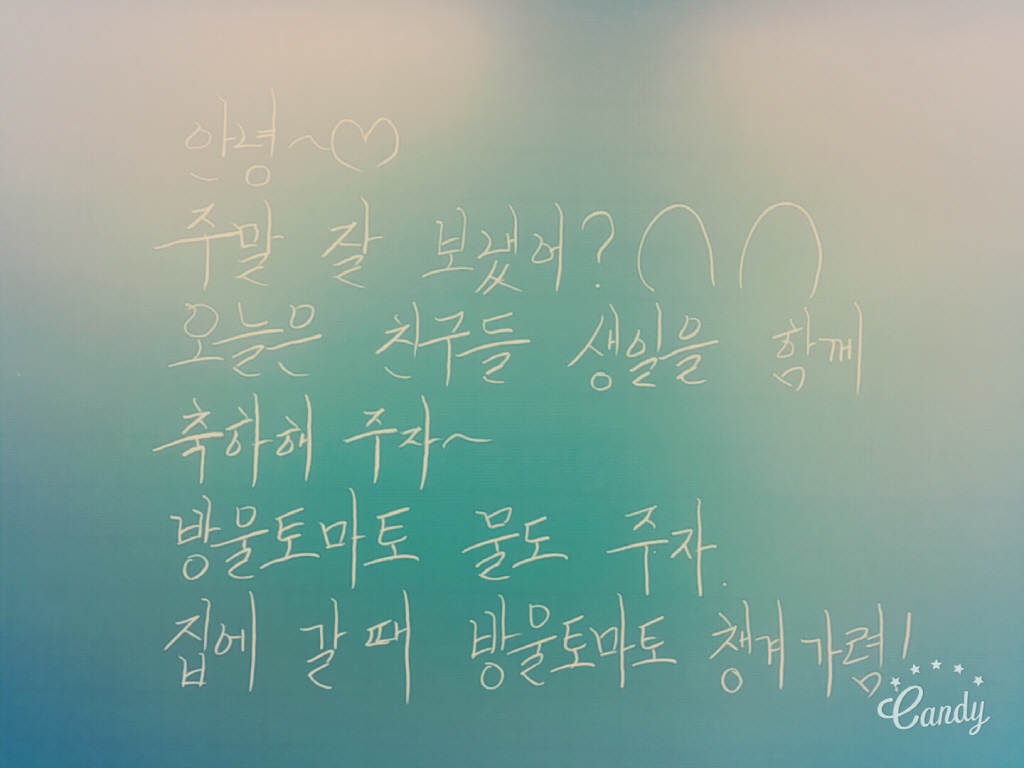 안녕~♡
주말 잘 보냈어? ∩ ∩
오늘은 친구들 생일을 함께
축하해 주자~
방울토마토 물도 주자.
집에 갈 때 방울토마토 챙겨가렴!
Candy